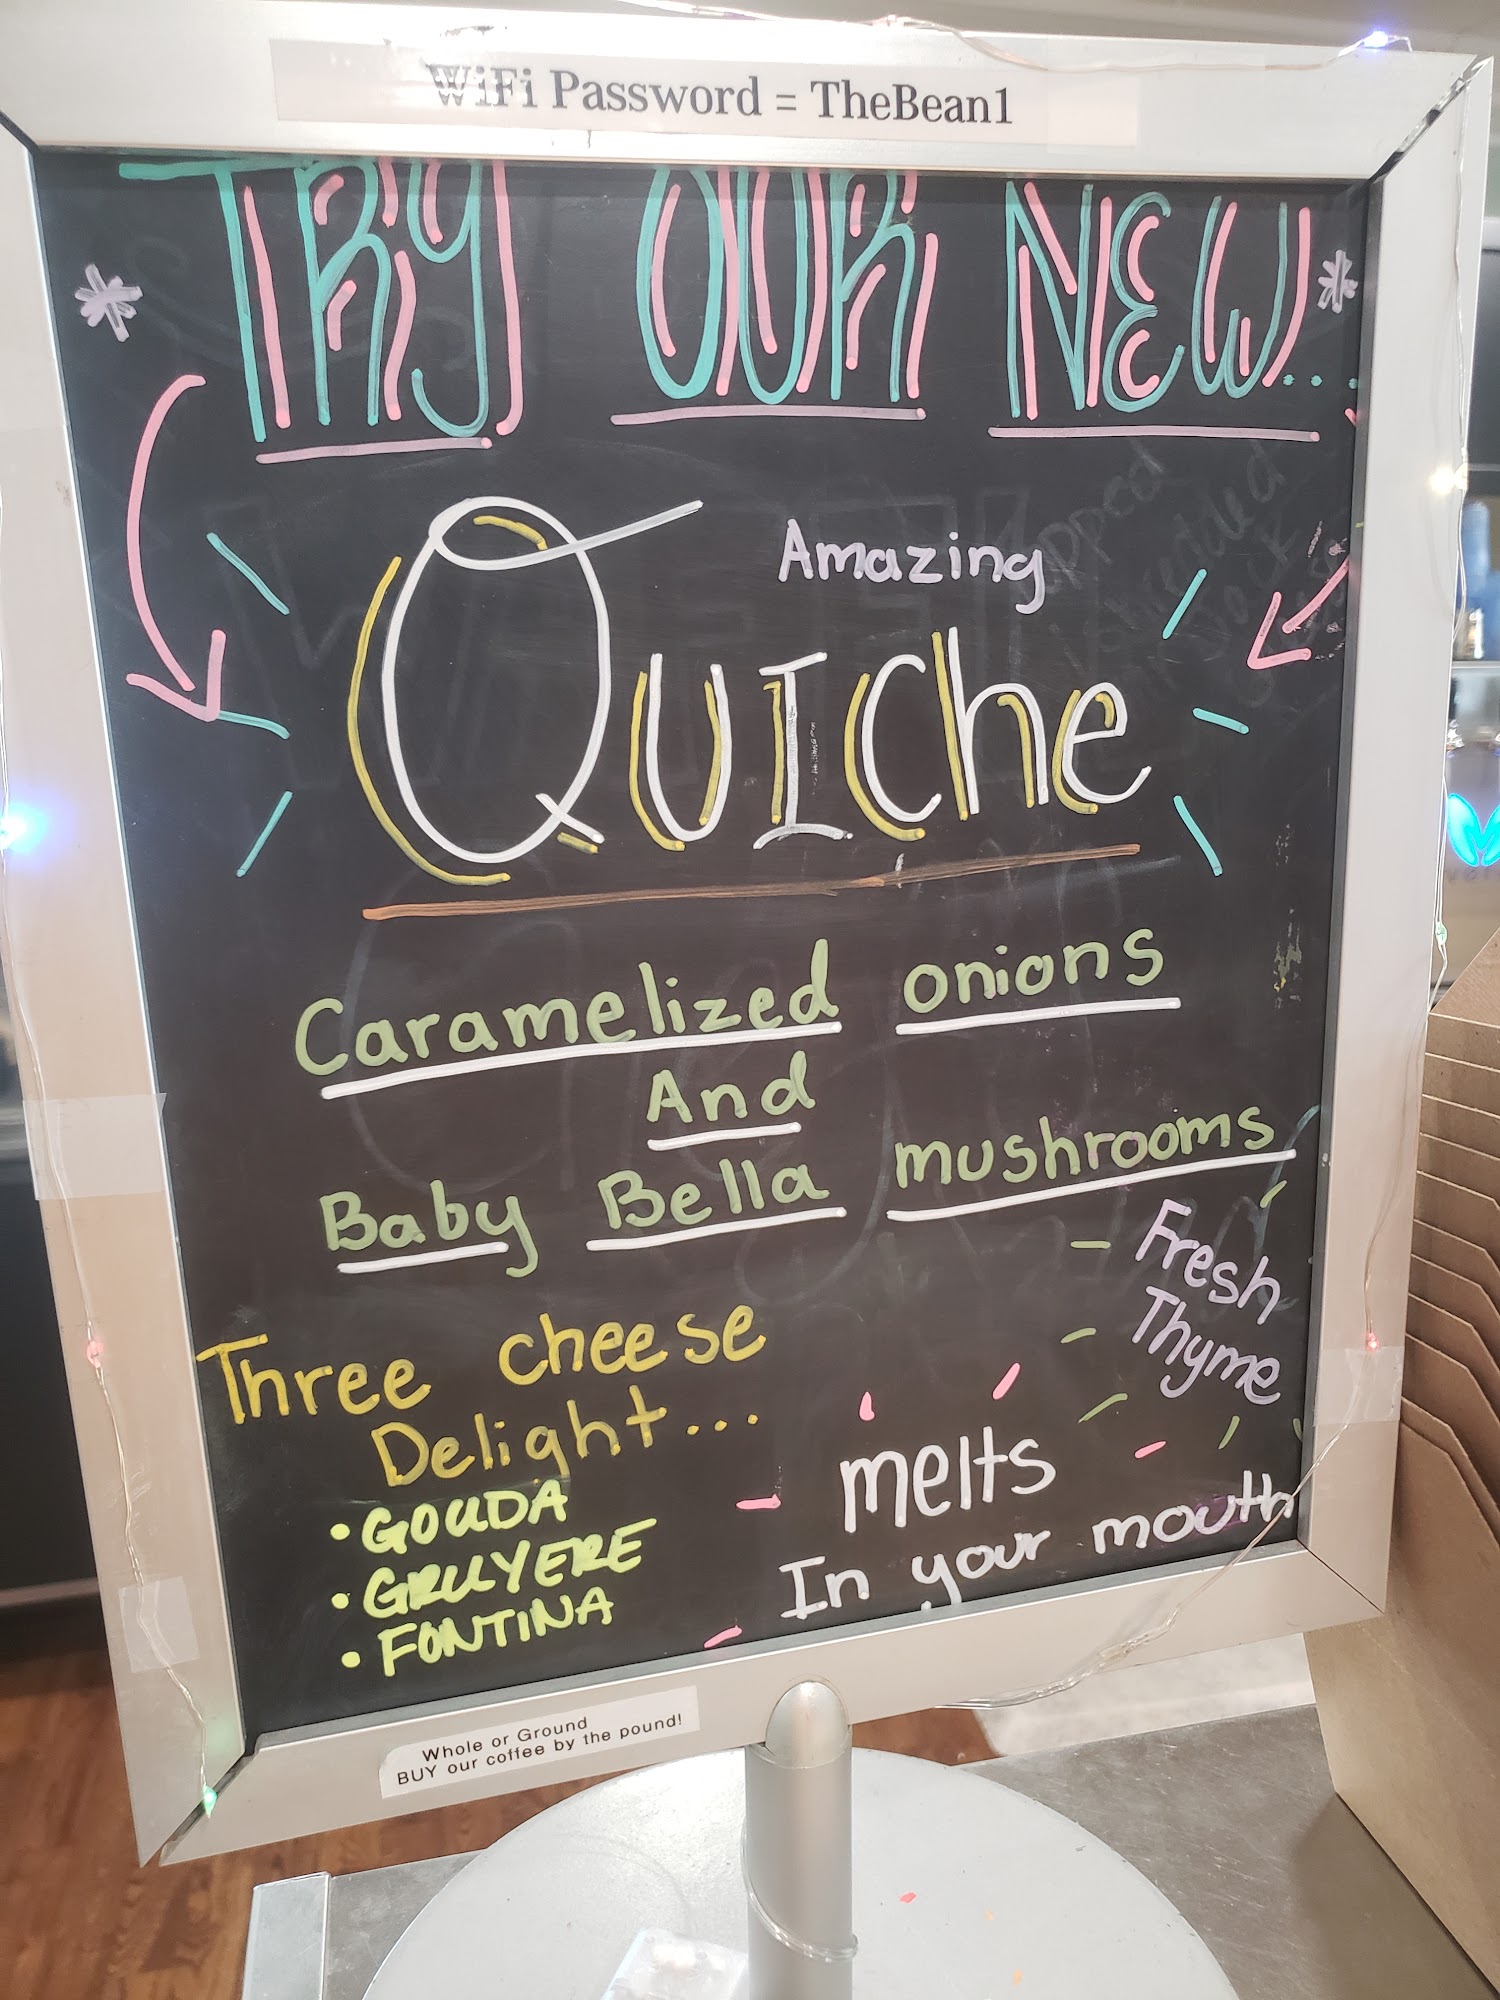 WiFi Password = TheBean1
* TRY OUR NEW... *
Amazing
QUIChe
Caramelized onions
And
Baby Bella mushrooms
Fresh
Thyme
Three cheese
Delight...
• GOUDA
• GRUYERE
• FONTINA
melts
In your mouth
Whole or Ground
BUY our coffee by the pound!